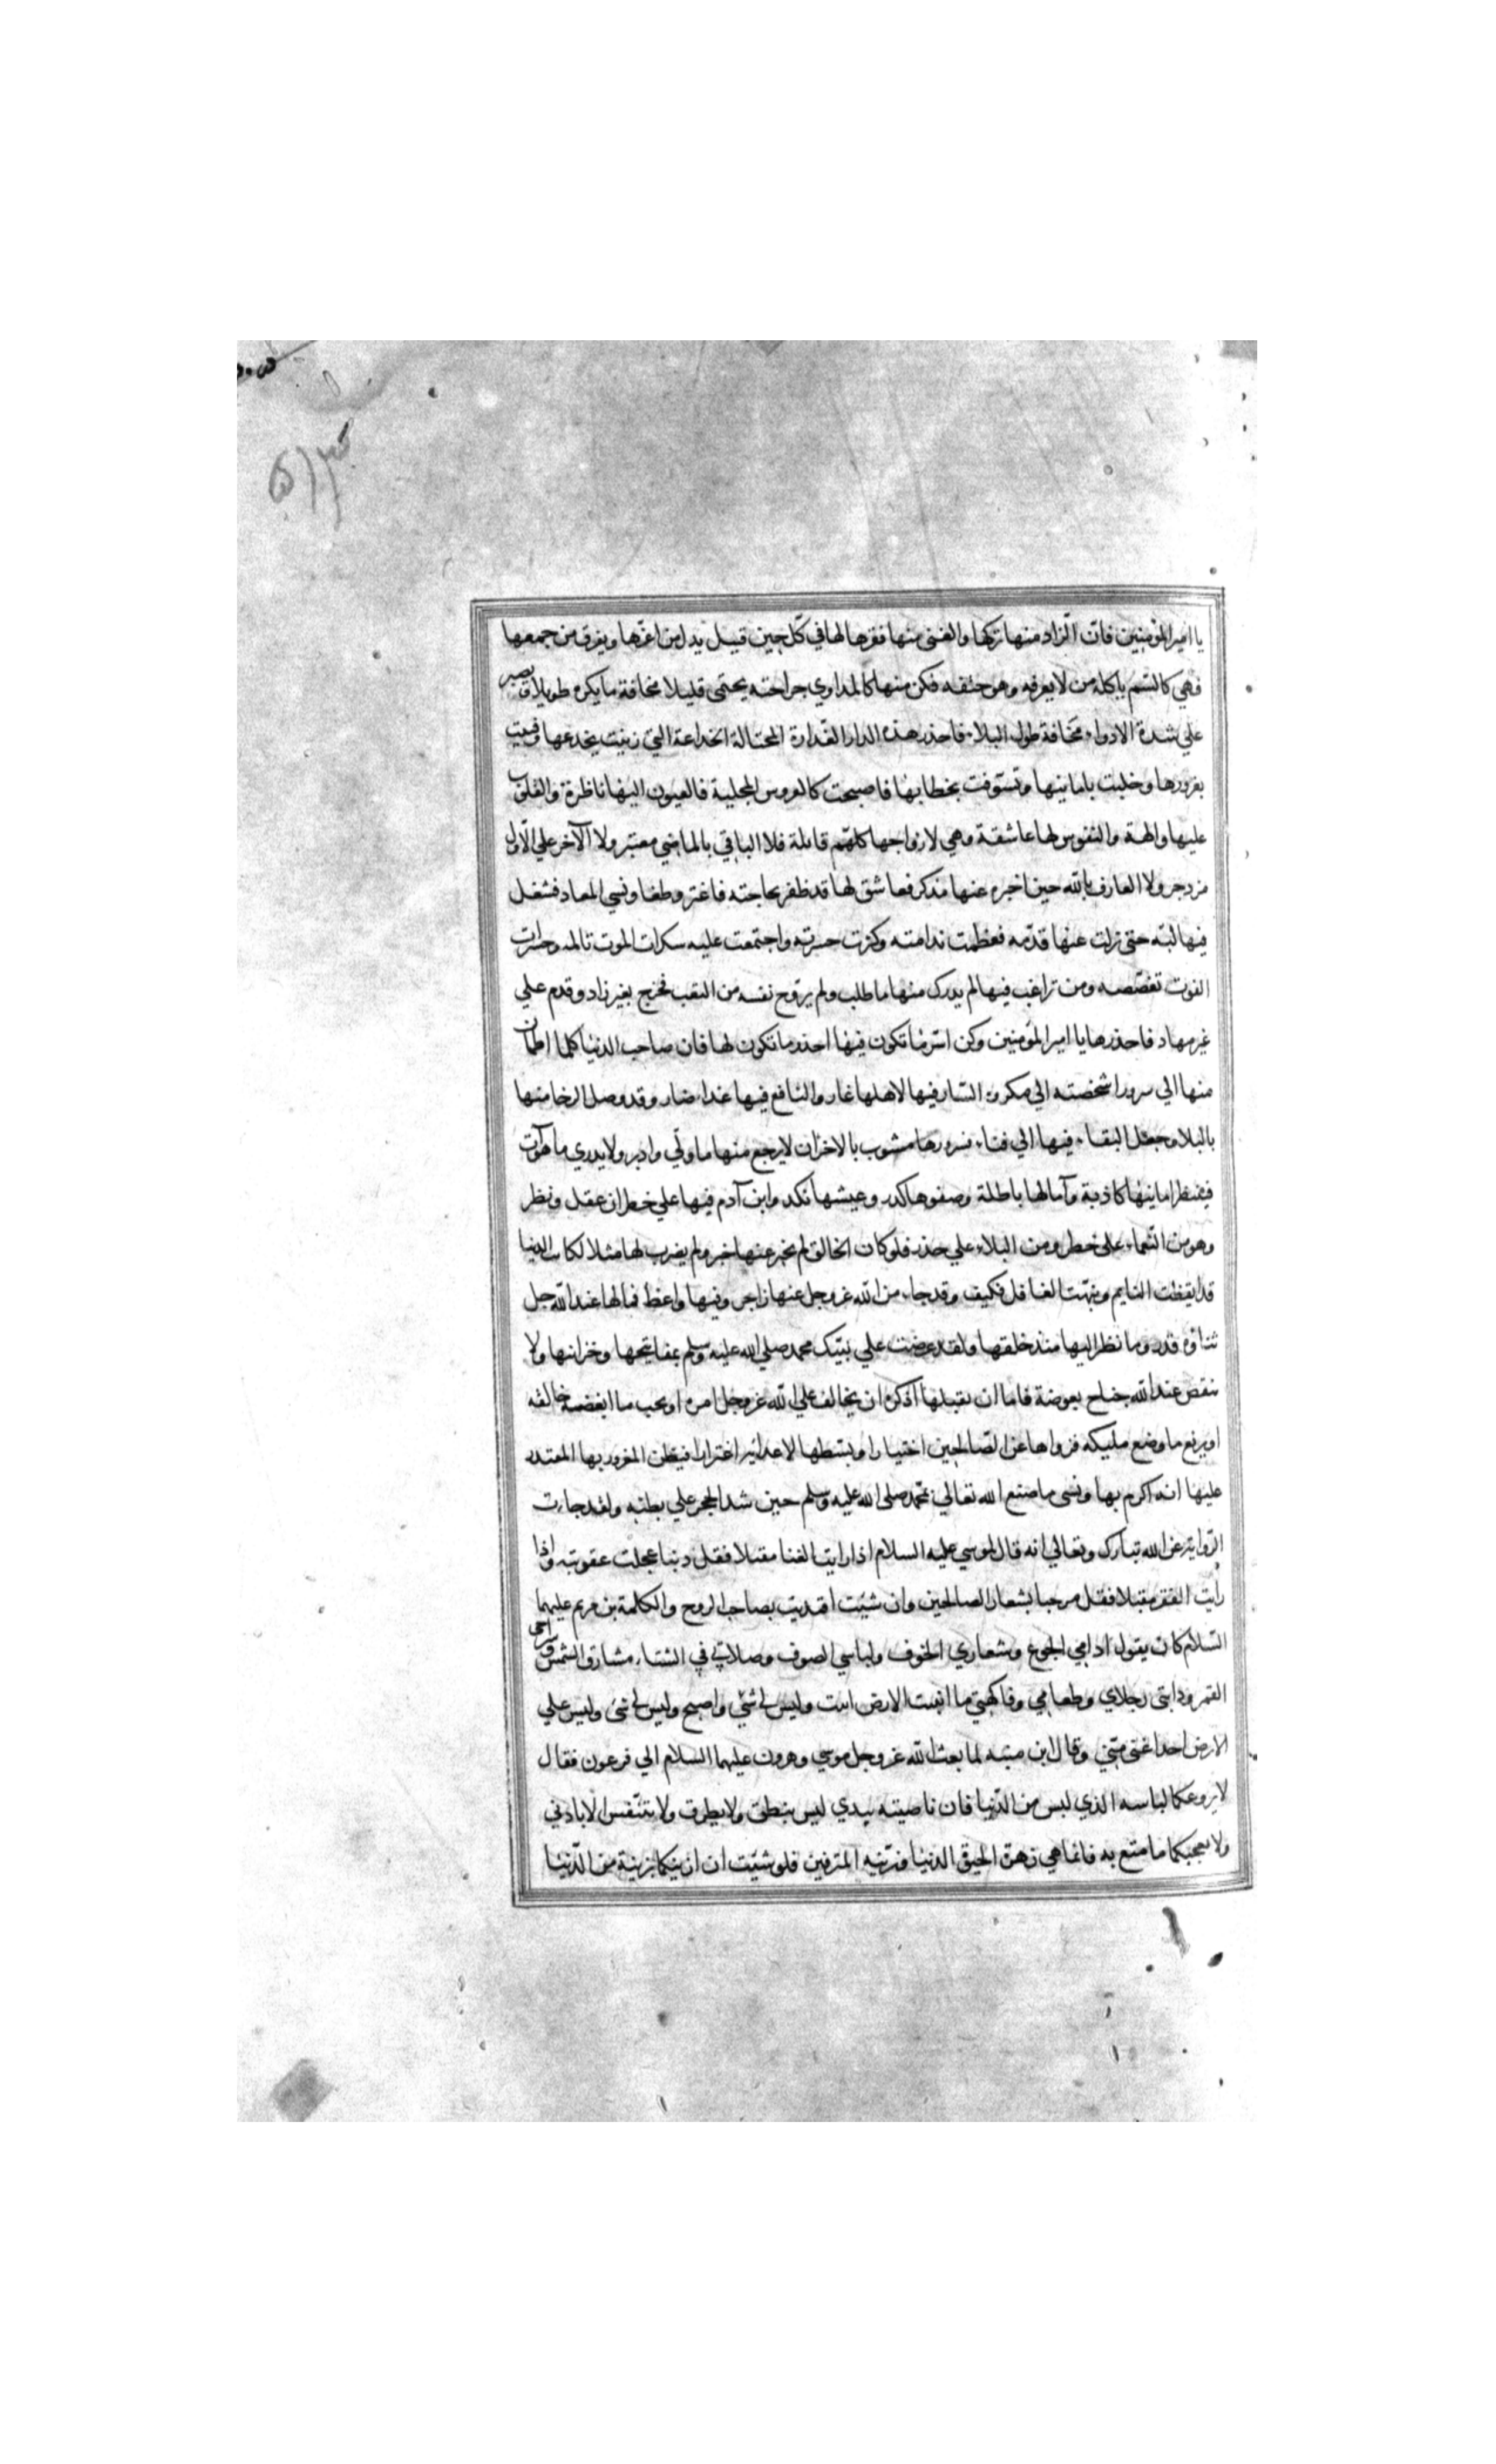 يا امير المؤمنين فانّ الزاد منها تركها والغنى منها فقرها لها في كلّ حين قتيل يذل من اعزّها ويفرق من جمعها
فهي كالسّم ياكله من لا يعرفه وهو حتفه فكن منها كالمداوي جراحته يحتمى قليلا مخافة ما يكره طويلا ويصبر
علي شدة الادواء مخافة طول البلاء فاحذر هذه الدار الغدّارة المحتالة الخداعة التي زينت بخدعها وفتنت
بغرورها وخلبت بامانيها وتسوفت بخطابها فاصبحت كالعروس المجلية فالعيون اليها ناظرة والقلوب
عليها والهة والنفوس لها عاشقة وهي لازواجها كلهّم قاتلة فلا الباقي بالماضي معتبر ولا الآخر علي الاول
مزدجر ولا العارف بالله حين اخبره عنها مذكر فعاشق لها قد ظفر بحاجته فاغتر وطغا ونسي المعاد فشغل
فيها لبّه حتى زلت عنها قدمه فعظمت ندامته وكثرت حسرته واجتمعت عليه سكرات الموت تالمه وحسرات
الفوت تغصّصه ومن راغب فيها لم يدرك منها ما طلب ولم يروّح نفسه من التعب فخرج بغير زاد وقدم علي
غير مهاد فاحذرها يا امير المؤمنين وكن اسرّ ما تكون فيها احذر ما تكون لها فان صاحب الدنيا كلما اطمان
منها الي سرور اشخصته الي مكروه السّار فيها لاهلها غار والنافع فيها غداء ضار وقد وصل الرخا منها
بالبلاء وجعل البقاء فيها الي فناء فسرورها مشوب بالاحزان لا يرجع منها ما ولّي وادبر ولا يدري ما هو آت
فينتظر امانيها كاذبة وآمالها باطلة وصفوها كدر وعيشها نكد وابن آدم فيها علي خطر ان عقل ونظر
وهو من النّعماء على خطر ومن البلاء علي حذر فلو كان الخالق لم يخبر عنها خبر ولم يضرب لها مثلا لكانت الدنيا
قد ايقظت النايم ونبّهت الغافل فكيف وقد جاء من الله عز وجل عنها زاجر وفيها واعظ فما لها عند الله جل
ثناؤه قدر وما نظر اليها منذ خلقها ولقد عرضت علي نبيّك محمد صلي الله عليه وسلم بمفاتيحها وخزانها ولا
تنقص عند الله جناح بعوضة فاما ان يقبلها اذ كره ان يخالف علي الله عز وجل امره او يحب ما ابغضه خالقه
او يرفع ما وضع مليكه فزواها عن الصّالحين اختيارا وبسطها لاعدائه اغترارا فيظن المغرور بها المقتدر
عليها انه اكرم بها ونسي ما صنع الله تعالي بمحمّد صلى الله عليه وسلم حين شد الحجر علي بطنه ولقد جاءت
الرّواية عن الله تبارك وتعالي انه قال لموسي عليه السلام اذا رايت الغنا مقبلا فقل ذنبا عجلت عقوبته واذا
رأيت الفقر مقبلا فقل مرحبا بشعار الصالحين وان شئت اقتديت بصاحب الروح والكلمة بن مريم عليهما
السّلام كان يقول ادامي الجوع وشعاري الخوف ولباسي الصوف وصلاتي في الشتاء مشارق الشمس وسراجي
القمر ودابتى رجلاي وطعامي وفاكهتي ما انبتت الارض ابيت وليس لي شيء واصبح وليس لي شئ وليس علي
الارض احد اغنى منّي وقال ابن منبه لما بعث الله عز وجل موسي وهرون عليهما السلام الي فرعون فقال
لا يروعكما لباسه الذي لبس من الدّنيا فان ناصيته بيدي ليس ينطق ولا يطرف ولا يتنّفس الا باذني
ولا يعجبكما ما متع به فانما هي زهرة الحيوة الدنيا وزينة المترفين فلو شئت ان ازينكما بزينة من الدّنيا